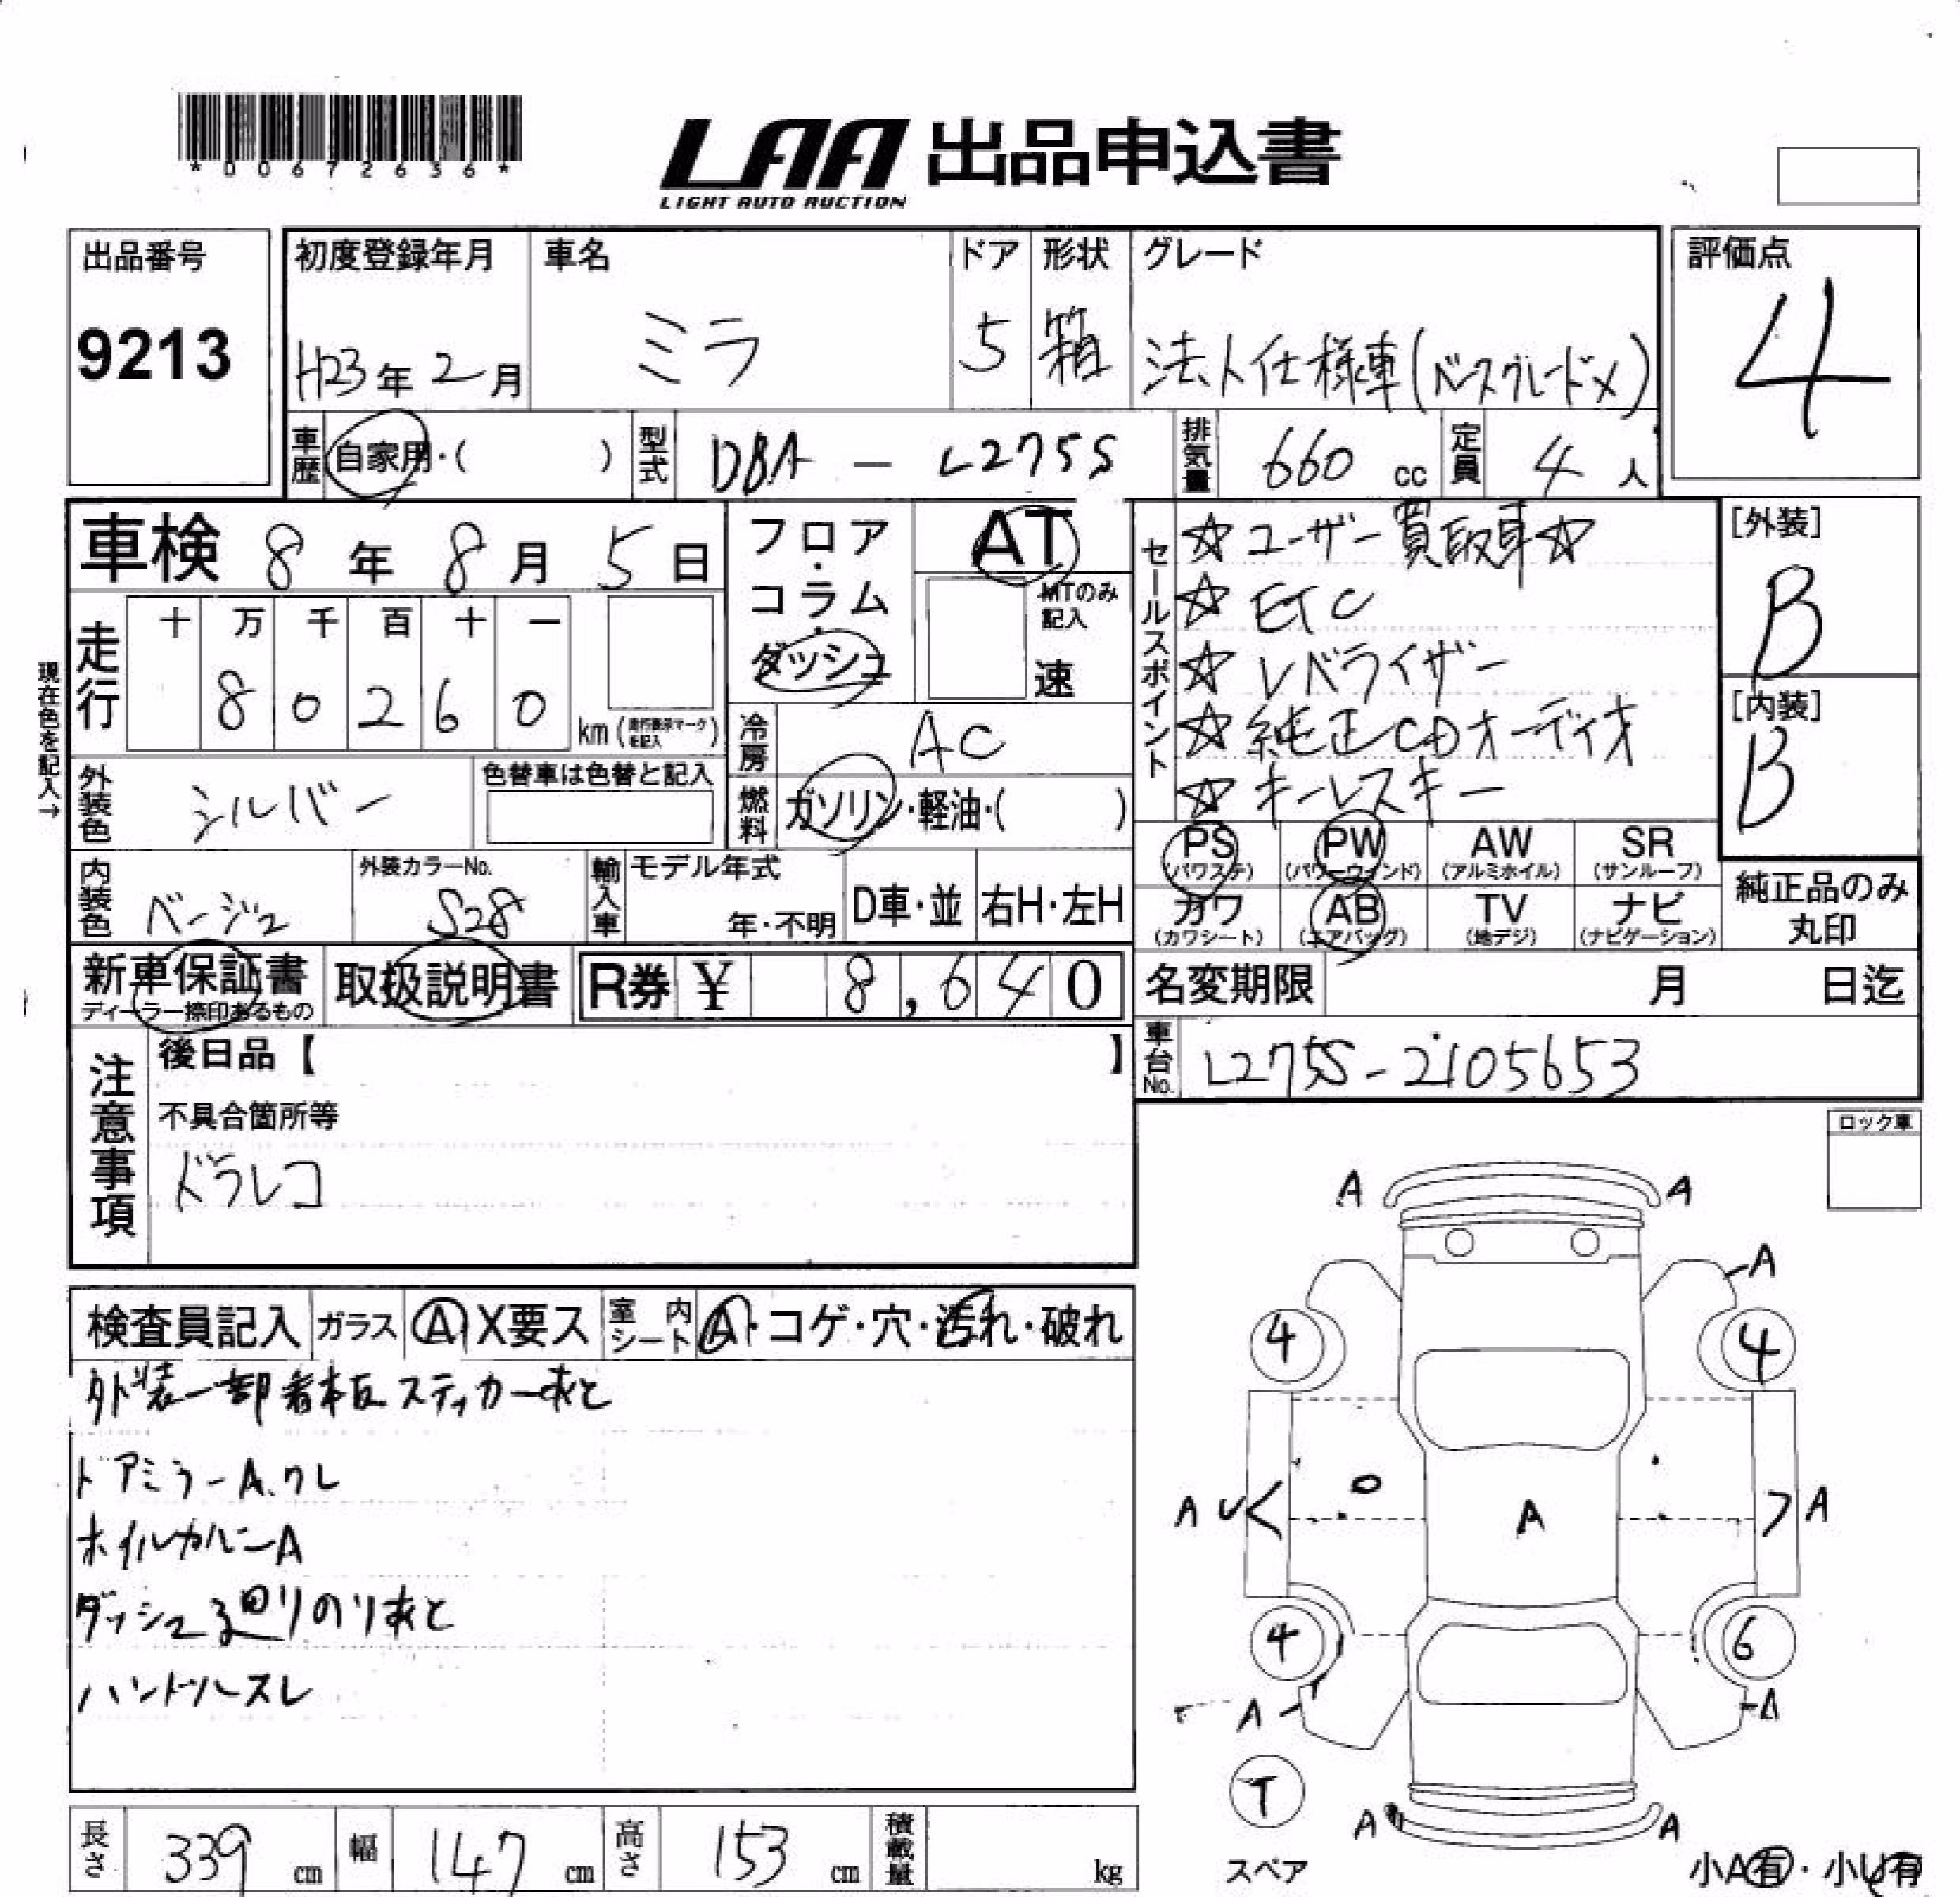 *00672636*
LAA 出品申込書
LIGHT AUTO AUCTION
出品番号
9213
初度登録年月
H23年 2月
車名
ミラ
ドア
5
形状
箱
グレード
法人仕様車(ベースグレードX)
評価点
4
車歴 自家用・( )
型式 DBA - L275S
排気量 660 cc
定員 4 人
車検 8 年 8 月 5 日
走行
十 万 千 百 十 一
8 0 2 6 0
km
現在色を記入→
フロア・コラム・ダッシュ
AT
MTのみ記入
速
冷房 AC
燃料 ガソリン・軽油・( )
セールスポイント
☆ユーザー買取車☆
☆ETC
☆レベライザー
☆純正CDオーディオ
☆キーレスキー
[外装]
B
[内装]
B
外装色 シルバー
色替車は色替と記入
内装色 ベージュ
外装カラーNo.
S28
輸入車
モデル年式
年・不明
D車・並
右H・左H
PS (パワステ)
PW (パワーウィンド)
AW (アルミホイル)
SR (サンルーフ)
カワ (カワシート)
AB (エアバッグ)
TV (地デジ)
ナビ (ナビゲーション)
純正品のみ
丸印
新車保証書
ディーラー捺印あるもの
取扱説明書
R券 ¥ 8,640
名変期限 月 日迄
車台No. L275S-2105653
注意事項
後日品【 】
不具合箇所等
ドラレコ
ロック車
検査員記入
ガラス A X要ス
室内シート A・コゲ・穴・汚れ・破れ
外装一部看板ステッカーあと
ドアミラーA.ワレ
ホイルカバーA
ダッシュ廻りのりあと
ハンドルスレ
A A
A
4 4
A U A A
4 6
A A
T
スペア
A A
小A有・小U有
長さ 339 cm
幅 147 cm
高さ 153 cm
積載量 kg